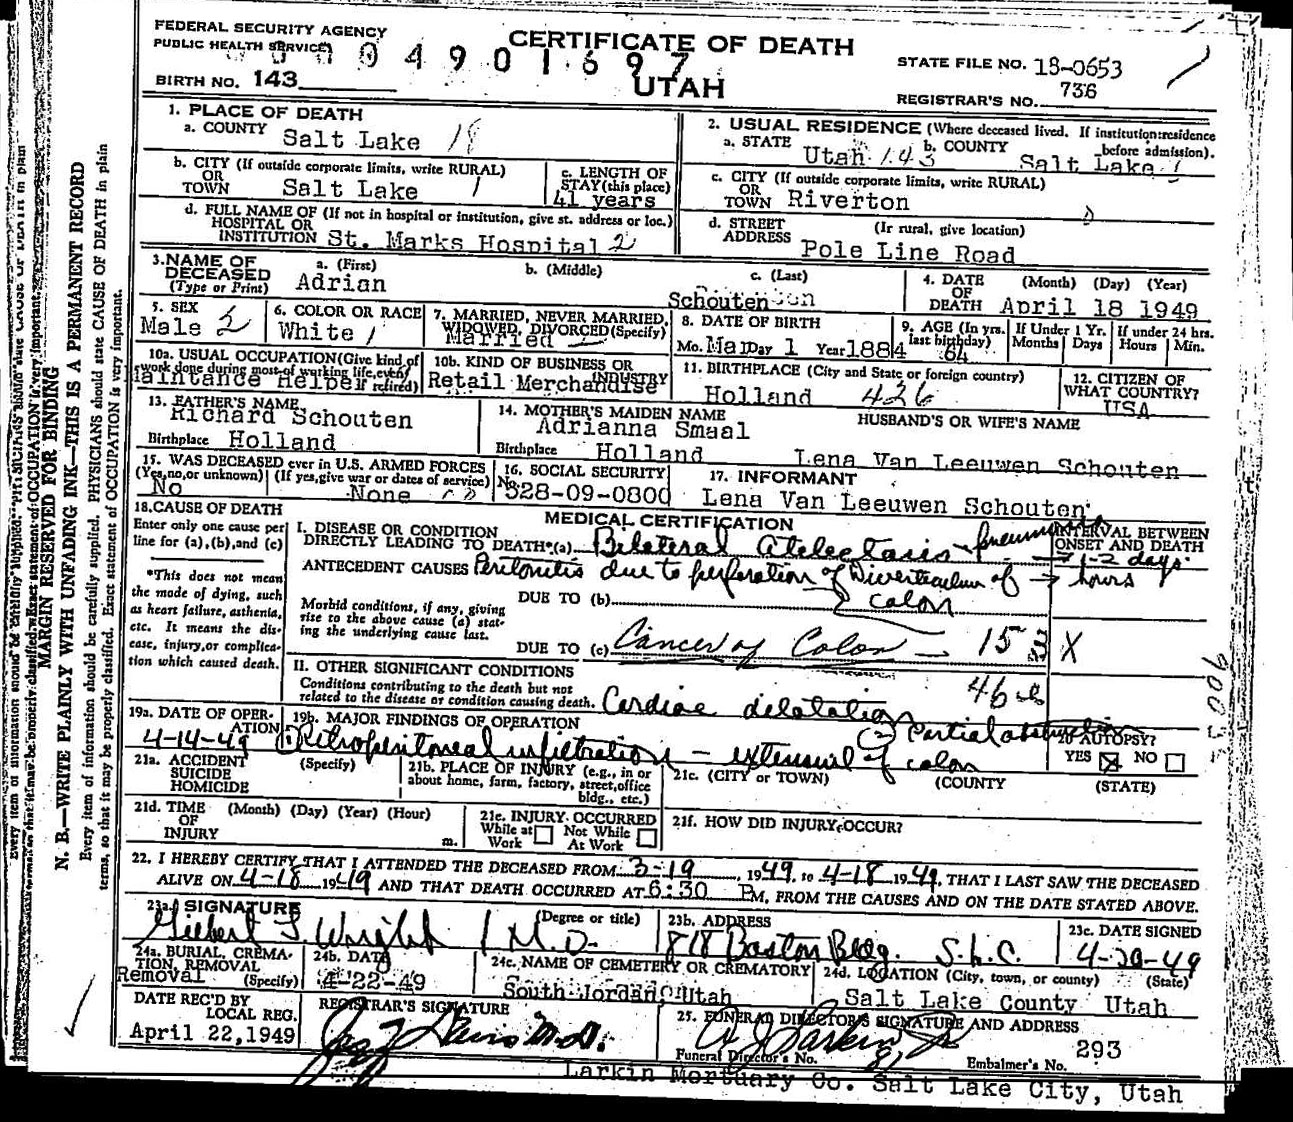 FEDERAL SECURITY AGENCY
PUBLIC HEALTH SERVICE
CERTIFICATE OF DEATH
0 4901697
UTAH
BIRTH NO. 143
STATE FILE NO. 18-0653
REGISTRAR'S NO. 736
1. PLACE OF DEATH
a. COUNTY Salt Lake 18
b. CITY (If outside corporate limits, write RURAL)
OR
TOWN Salt Lake 1
c. LENGTH OF
STAY (this place)
41 years
d. FULL NAME OF (If not in hospital or institution, give st. address or loc.)
HOSPITAL OR
INSTITUTION St. Marks Hospital 2
2. USUAL RESIDENCE (Where deceased lived. If institution: residence
before admission).
a. STATE Utah 143 b. COUNTY Salt Lake 1
c. CITY (If outside corporate limits, write RURAL)
OR
TOWN Riverton
d. STREET (If rural, give location)
ADDRESS Pole Line Road
3. NAME OF
DECEASED
(Type or Print)
a. (First) Adrian
b. (Middle)
c. (Last) Schouten
4. DATE (Month) (Day) (Year)
OF
DEATH April 18 1949
5. SEX Male
6. COLOR OR RACE White 1
7. MARRIED, NEVER MARRIED,
WIDOWED, DIVORCED (Specify)
Married
8. DATE OF BIRTH
Mo. Mar Day 1 Year 1884
9. AGE (In yrs.
last birthday)
64
If Under 1 Yr.
Months Days
If under 24 hrs.
Hours Min.
10a. USUAL OCCUPATION (Give kind of
work done during most of working life, even
if retired)
aintance Helper
10b. KIND OF BUSINESS OR
INDUSTRY
Retail Merchandise
11. BIRTHPLACE (City and State or foreign country)
Holland 426
12. CITIZEN OF
WHAT COUNTRY?
USA
13. FATHER'S NAME
Richard Schouten
Birthplace Holland
14. MOTHER'S MAIDEN NAME
Adrianna Smaal
Birthplace Holland
HUSBAND'S OR WIFE'S NAME
Lena Van Leeuwen Schouten
15. WAS DECEASED ever in U.S. ARMED FORCES
(Yes, no, or unknown) (If yes, give war or dates of service)
No None
16. SOCIAL SECURITY
No. 528-09-0800
17. INFORMANT
Lena Van Leeuwen Schouten
18. CAUSE OF DEATH
Enter only one cause per
line for (a), (b), and (c)
*This does not mean
the mode of dying, such
as heart failure, asthenia,
etc. It means the dis-
ease, injury, or complica-
tion which caused death.
MEDICAL CERTIFICATION
INTERVAL BETWEEN
ONSET AND DEATH
I. DISEASE OR CONDITION
DIRECTLY LEADING TO DEATH*(a) Bilateral Atelectasis - pneumonia 1-2 days
ANTECEDENT CAUSES Peritonitis due to perforation of Diverticulum of → hours
colon
DUE TO (b)
Morbid conditions, if any, giving
rise to the above cause (a) stat-
ing the underlying cause last.
DUE TO (c) Cancer of Colon — 153 X
II. OTHER SIGNIFICANT CONDITIONS
Conditions contributing to the death but not
related to the disease or condition causing death. Cardiac dilatation
19a. DATE OF OPER-
ATION
4-14-49
19b. MAJOR FINDINGS OF OPERATION
① Retroperitoneal infiltration — extensive ② Partial obstruction of colon
20 AUTOPSY?
YES ☒ NO ☐
21a. ACCIDENT (Specify)
SUICIDE
HOMICIDE
21b. PLACE OF INJURY (e.g., in or
about home, farm, factory, street, office
bldg., etc.)
21c. (CITY or TOWN) (COUNTY) (STATE)
21d. TIME (Month) (Day) (Year) (Hour)
OF
INJURY m.
21e. INJURY OCCURRED
While at Work ☐ Not While At Work ☐
21f. HOW DID INJURY OCCUR?
22. I HEREBY CERTIFY THAT I ATTENDED THE DECEASED FROM 3-19, 1949, to 4-18 1949, THAT I LAST SAW THE DECEASED
ALIVE ON 4-18 1949 AND THAT DEATH OCCURRED AT 6:30 PM, FROM THE CAUSES AND ON THE DATE STATED ABOVE.
23a. SIGNATURE (Degree or title)
Gilbert J. Wright M.D.
23b. ADDRESS
818 Boston Bldg. S.L.C.
23c. DATE SIGNED
4-20-49
24a. BURIAL, CREMA-
TION, REMOVAL
(Specify)
Removal
24b. DATE
4-22-49
24c. NAME OF CEMETERY OR CREMATORY
South Jordan, Utah
24d. LOCATION (City, town, or county) (State)
Salt Lake County Utah
DATE REC'D BY
LOCAL REG.
April 22, 1949
REGISTRAR'S SIGNATURE
M.D.
25. FUNERAL DIRECTOR'S SIGNATURE AND ADDRESS
Funeral Director's No.
Embalmer's No. 293
Larkin Mortuary Co. Salt Lake City, Utah
MARGIN RESERVED FOR BINDING
N. B.—WRITE PLAINLY WITH UNFADING INK—THIS IS A PERMANENT RECORD
Every item of information should be carefully supplied. PHYSICIANS should state CAUSE OF DEATH in plain
terms, so that it may be properly classified. Exact statement of OCCUPATION is very important.